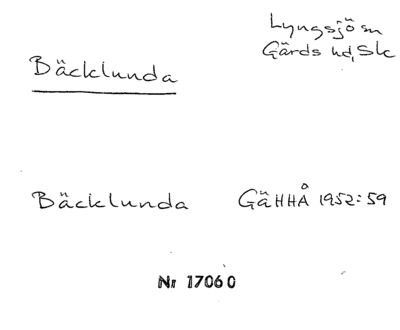 Lyngsjö sn
Gärds hd, Sk
Bäcklunda
Bäcklunda GäHHÅ 1952:59
Nr 17060